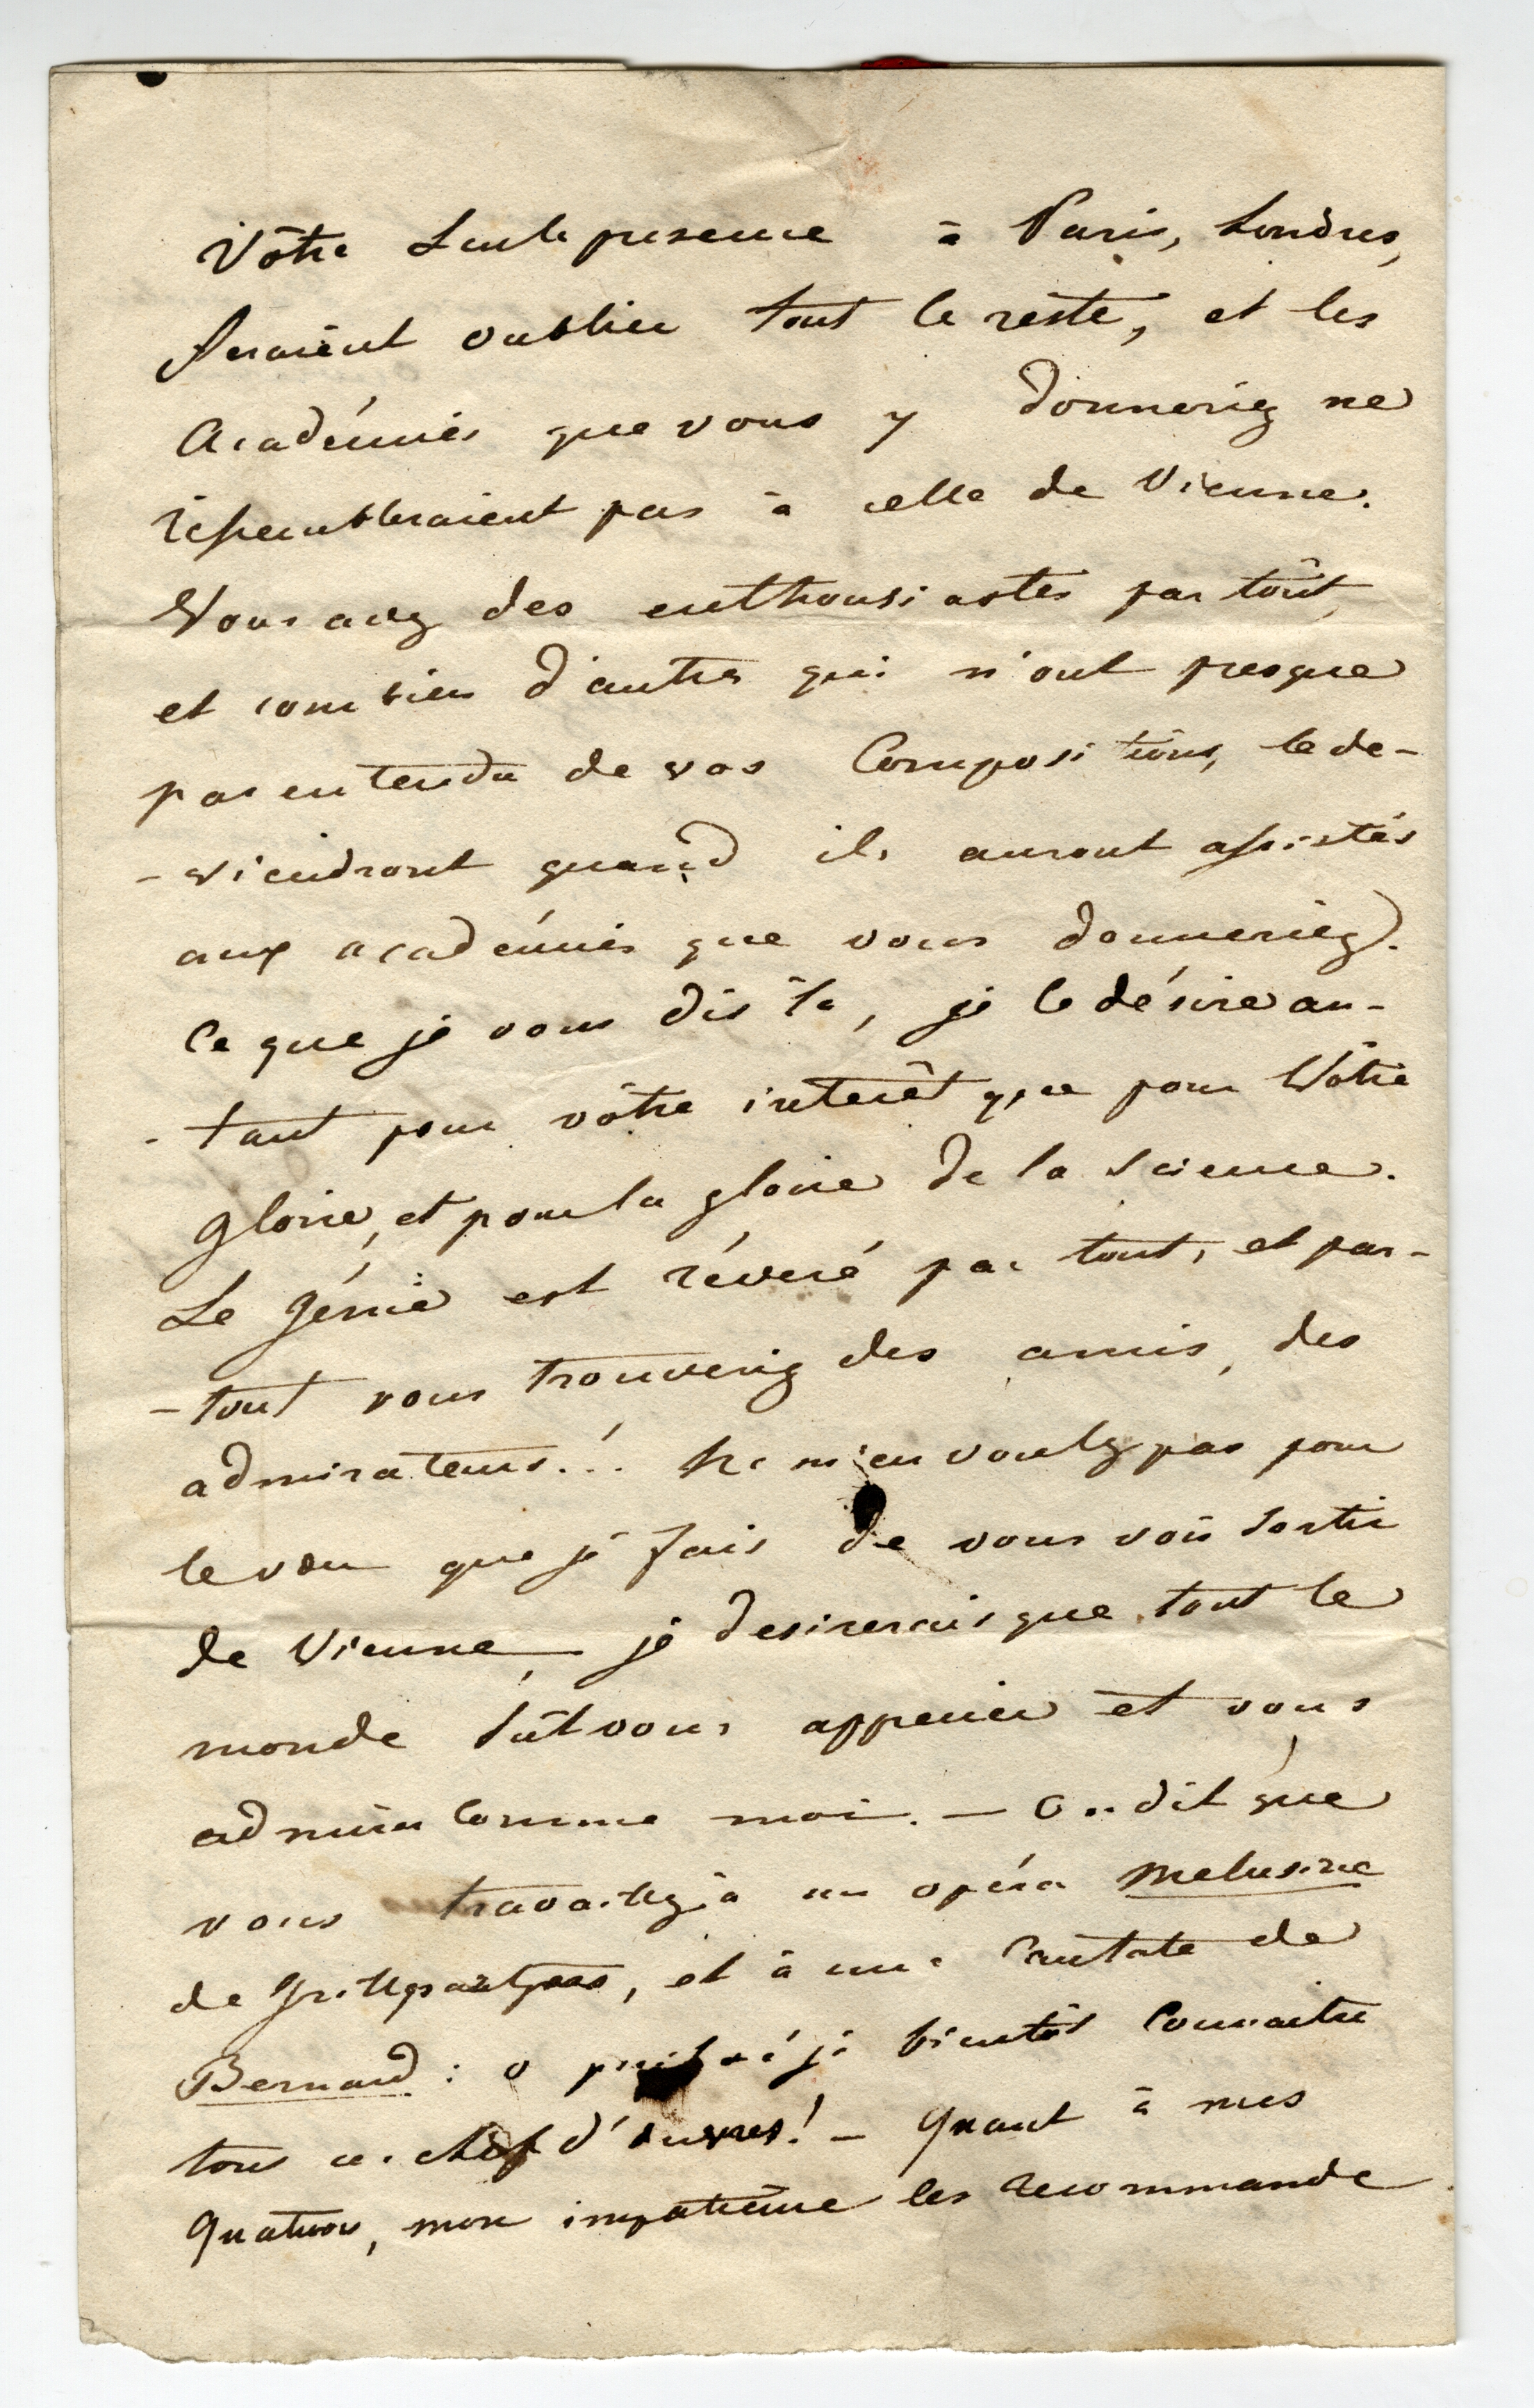 Vôtre seule presence à Paris, Londres,
feraient oublier tout le reste, et les
Académies que vous y donneriez ne
ressembleraient pas à celle de Vienne.
Vous avez des enthousiastes par tout,
et combien d'autres qui n'ont presque
pas entendu de vos Compositions, le de-
-viendront quand ils auront assistés
aux académies que vous donneriez.
Ce que je vous dis là, je le désire au-
-tant pour vôtre interêt que pour Vôtre
gloire, et pour la gloire de la Science.
Le génie est réveré par tout, et par-
-tout vous trouveriez des amis, des
admirateurs!.. Ne m'en voulez pas pour
le vœu que je fais de vous voir sortir
de Vienne, je desirerais que tout le
monde sût vous apprecier et vous
admirer comme moi. — On dit que
vous travaillez à un opéra Melusine
de Grillparzer, et à une Cantate de
Bernard : o puissé je bientôt connaitre
tous ces chef d'œuvres! — Quant à mes
Quatuors, mon impatience les recommande